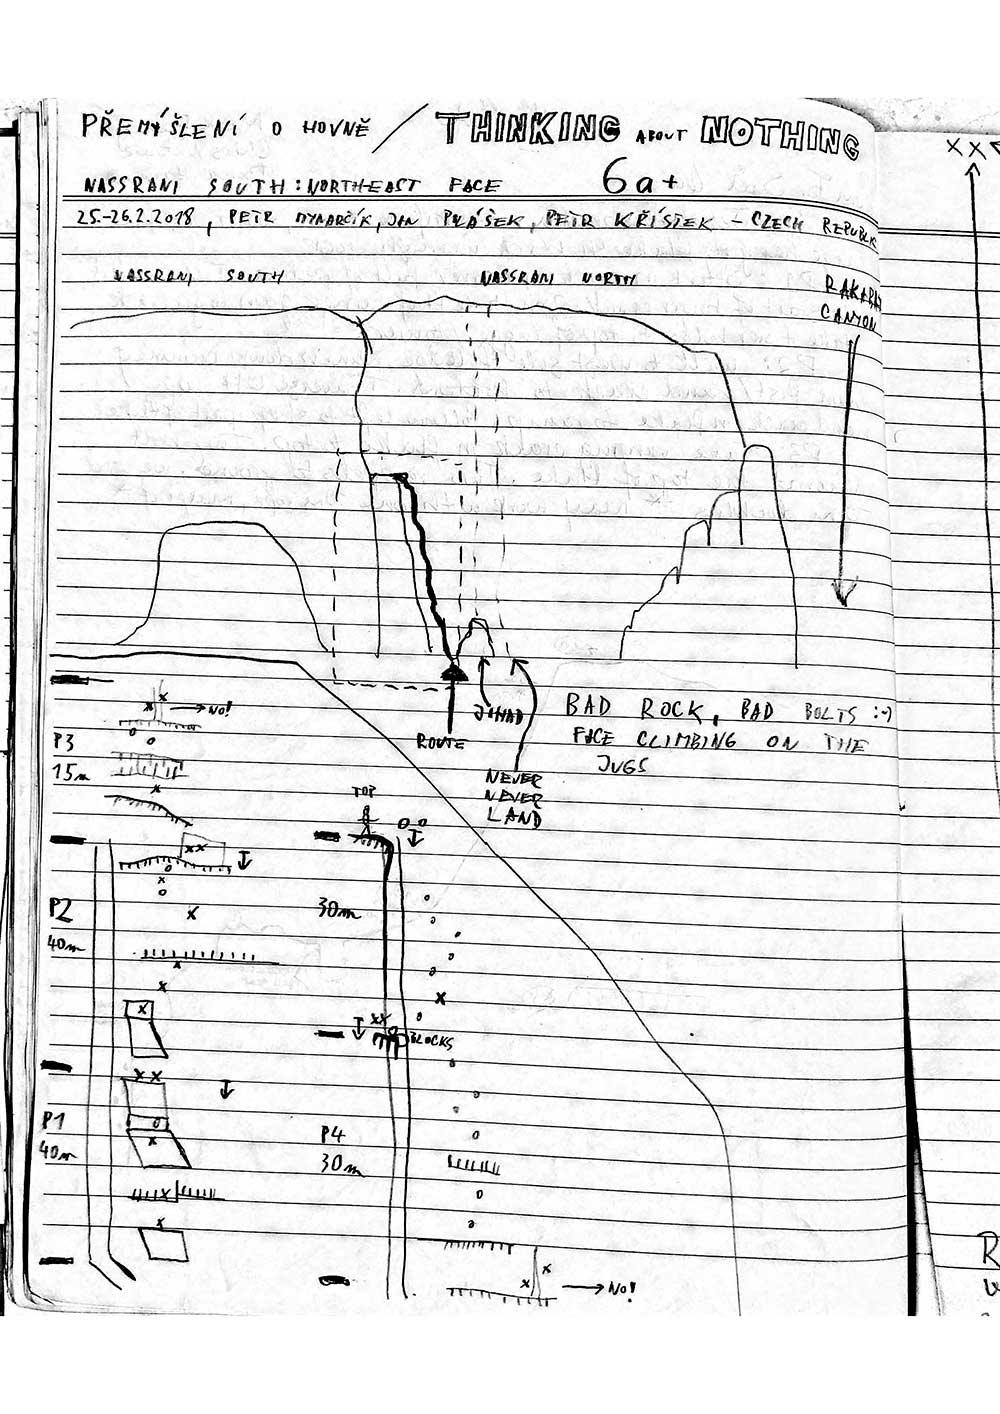 PŘEMÝŠLENÍ O HOVNĚ / THINKING ABOUT NOTHING
NASSRANI SOUTH: NORTHEAST FACE 6a+
25-26.2.2018, PETR MYNARČÍK, JAN PLÁŠEK, PETR KŘÍSTEK - CZECH REPUBLIC
NASSRANI SOUTH
NASSRANI NORTH
CANYON
JIHAD
ROUTE
NEVER
NEVER
LAND
BAD ROCK, BAD BOLTS :-)
FACE CLIMBING ON THE
JUGS
NO!
P3
15m
P2
40m
P1
40m
TOP
30m
BLOCKS
P4
30m
NO!